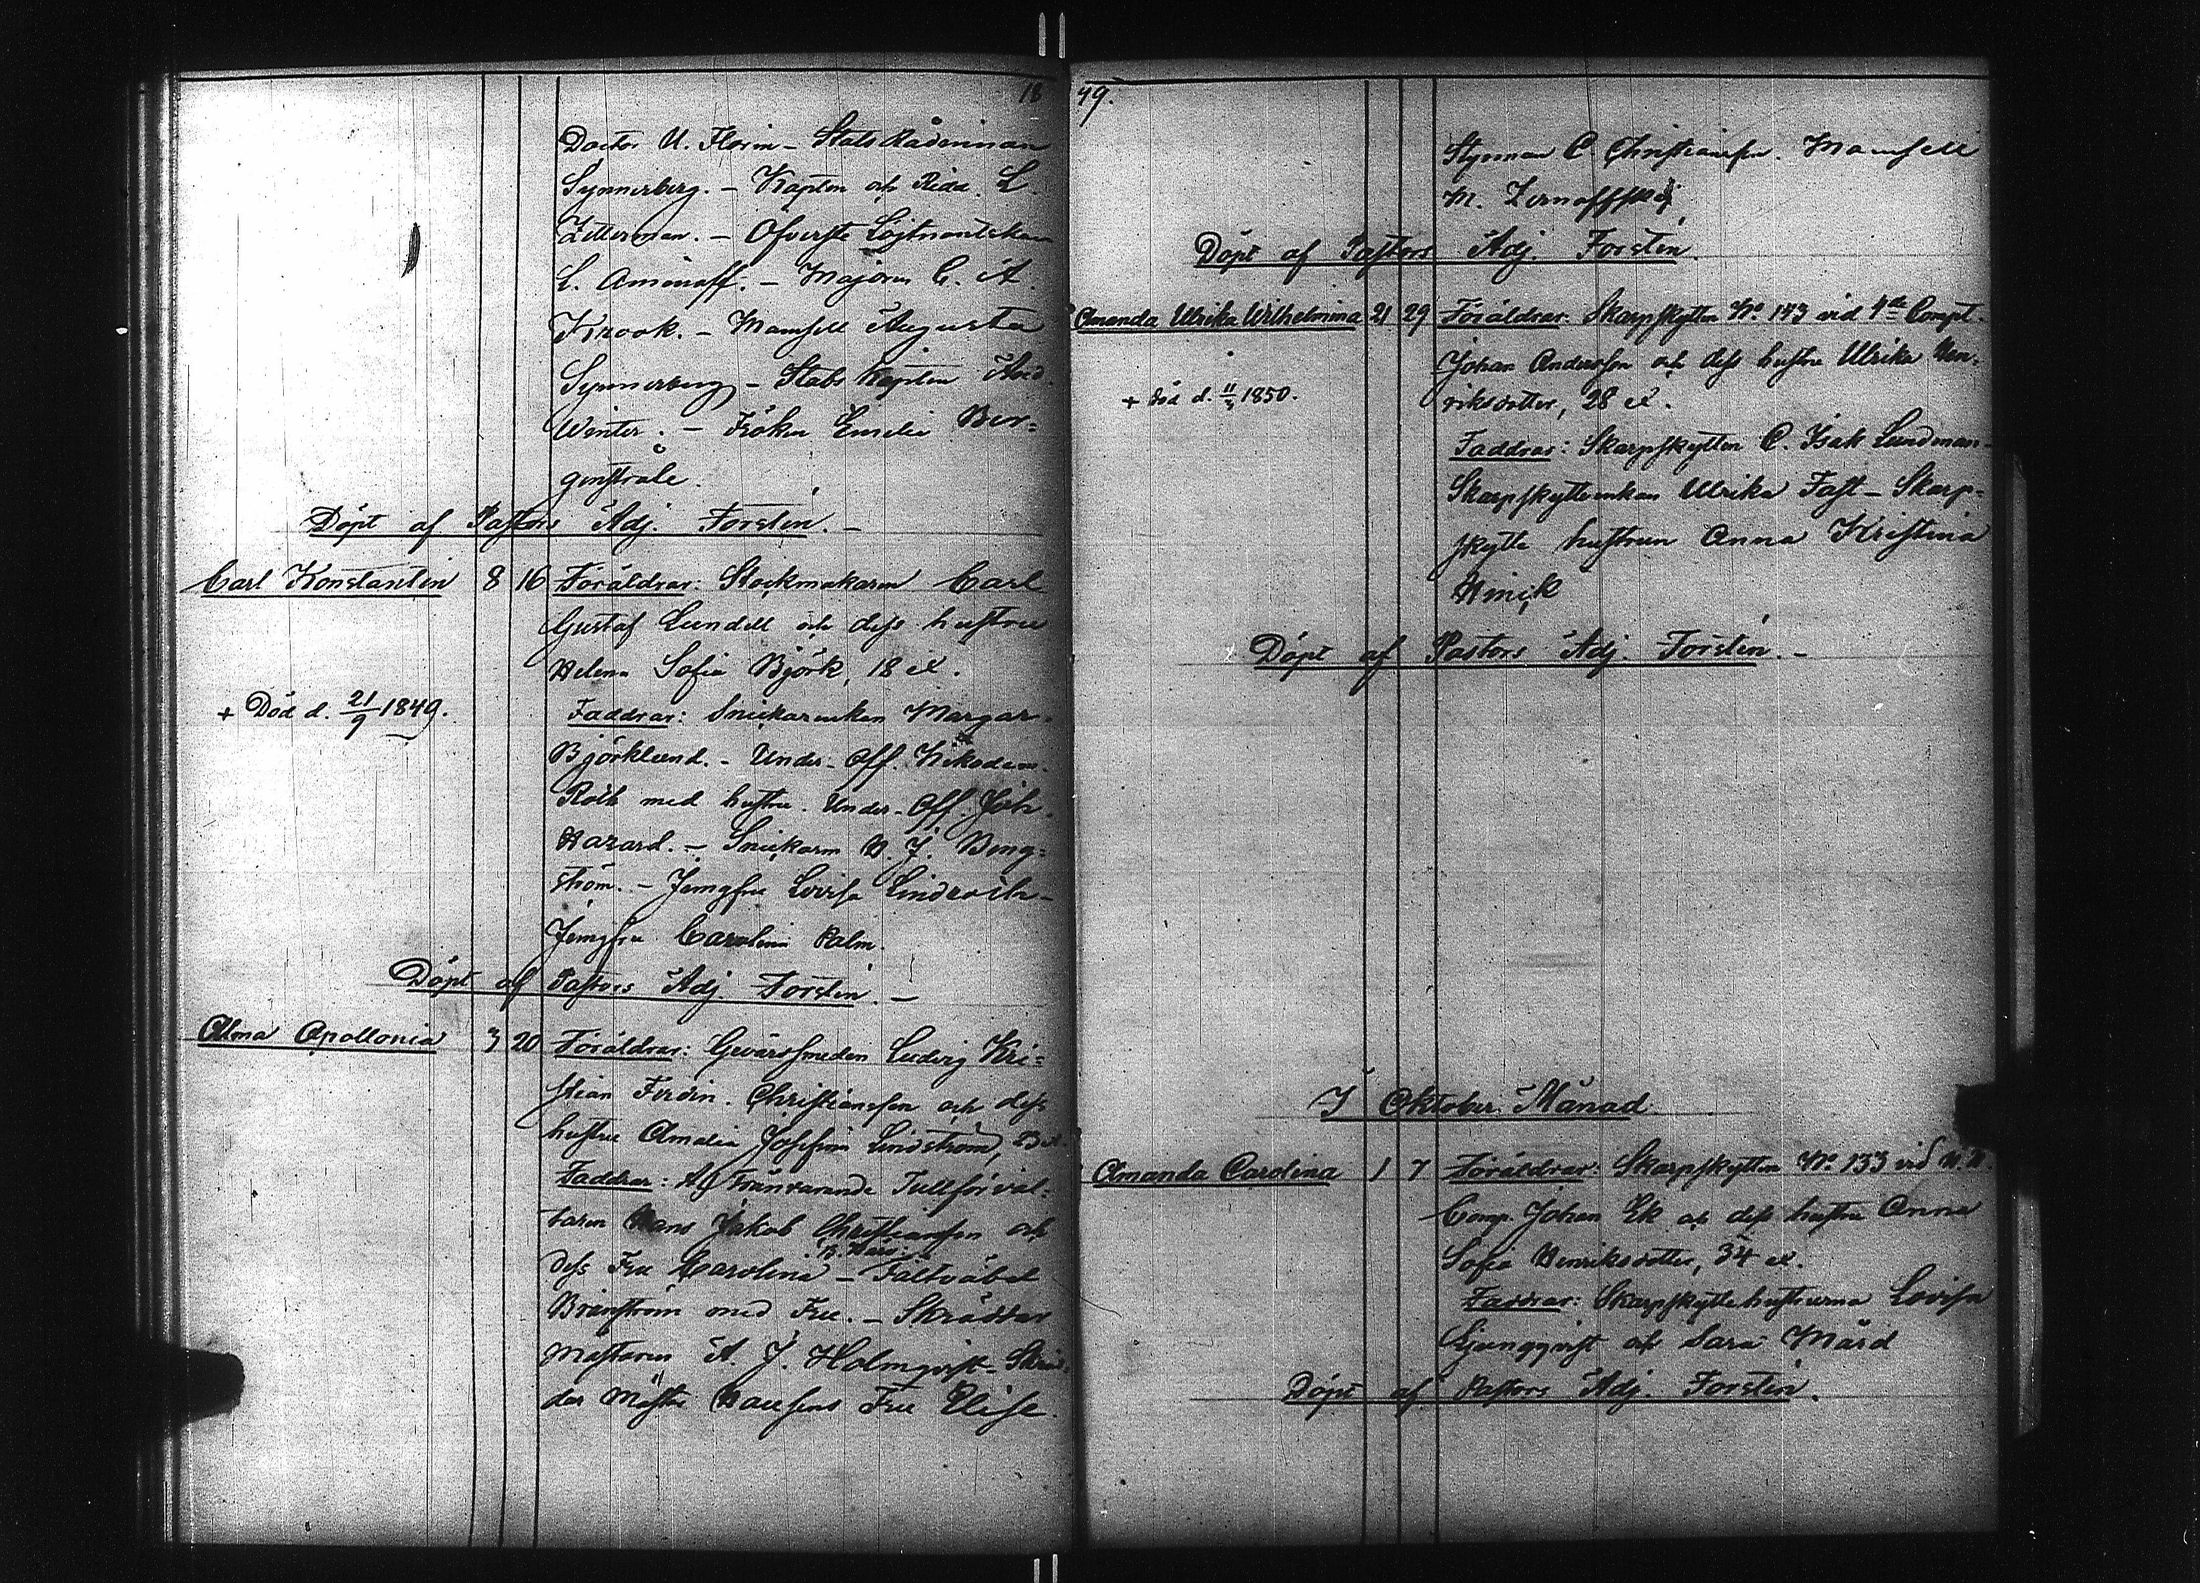 18
Doctor U. Florin - StatsRådinnan
Synnerberg. - Kapten och Ridd. L.
Zitterman. - Öfverste Löjtnantskan
L. Aminoff. - Majoren C. A.
Krook. - Mamsell Augusta
Synnerberg - Stabs Kapten Arvid
Winter. - Fröken Emelie Ber=
genstråle.
Döpt af Pastors Adj. Forstén. -
Carl Konstantin 8 16 Föräldrar: Stockmakaren Carl
Gustaf Lundell och dess hustru
Helena Sofia Björk, 18 et.
+ Död d. 21/9 1849.
Faddrar: Snickarenkan Margar.
Björklund. - Under-Off. Nikodem.
Roth med hustru. Under-Off. Joh.
Hazard. - Snickarn H. J. Beng=
ström. - Jungfru Lovisa
Jungfru Carolina Palm.
Döpt af Pastors Adj. Forstén. -
Alma Apollonia 3 20 Föräldrar: Gevärssmeden Ludvig Kri=
stian Ferdin. Christiansen och dess
hustru Amalia Josefina Lindström,
Faddrar: Af Frånvarande Tullförval=
taren Hans Jakob Christiansen och
dess Fru Carolina - Fältväbel
Bränström med Fru. - Skräddar
Mästaren A. J. Holmqvist - Skräd=
dar Mäster Hansens Fru Elise.
49.
Styrman C. Christiansen. Mamsell
M.
Döpt af Pastors Adj. Forstén.
Amanda Ulrika Wilhelmina 21 29 Föräldrar: Skarpskytten No 143 vid 4de Compt.
Johan Andersson och dess hustru Ulrika Hen=
riksdotter, 28 et.
+ död d. 11/3 1850.
Faddrar: Skarpskytten C. Isak Lundman -
Skarpskytteenkan Ulrika Fast - Skarp=
skytte hustrun Anna Kristina
Döpt af Pastors Adj. Forstén. -
I Oktober Månad
Amanda Carolina 1 7 Föräldrar: Skarpskytten No 133 vid
Comp. Johan Ek och dess hustru Anna
Sofia Henriksdotter, 34 et.
Faddrar: Skarpskyttehustrurna Lovisa
Ljungqvist och Sara Mård
Döpt af Pastors Adj. Forstén.